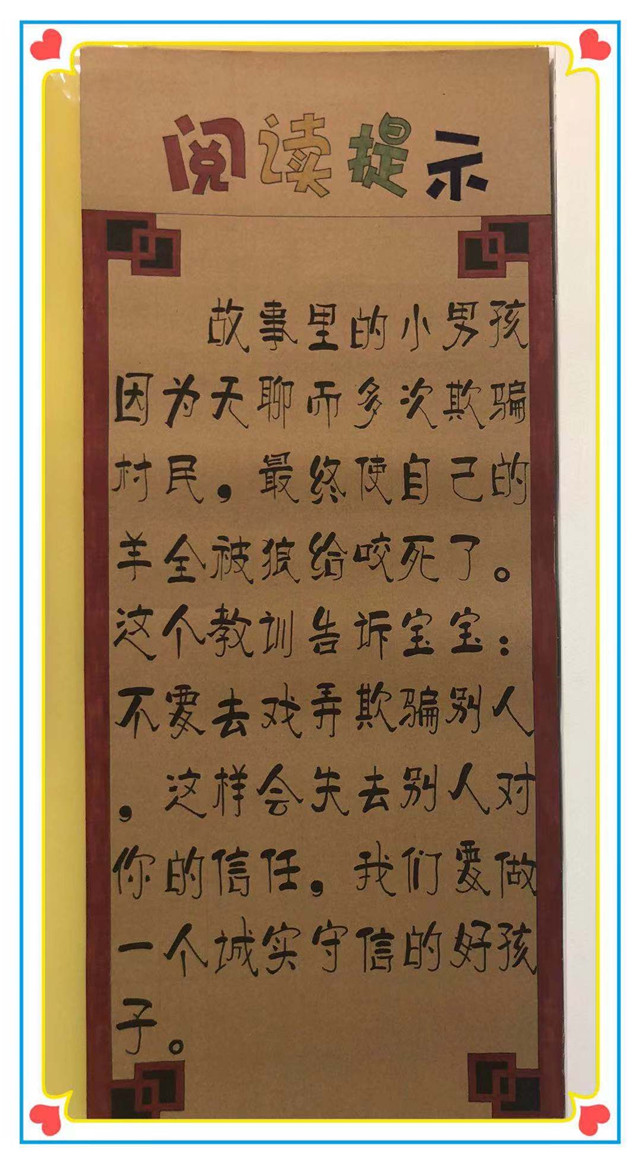 阅读提示
故事里的小男孩
因为无聊而多次欺骗
村民，最终使自己的
羊全被狼给咬死了。
这个教训告诉宝宝：
不要去戏弄欺骗别人
，这样会失去别人对
你的信任，我们要做
一个诚实守信的好孩
子。